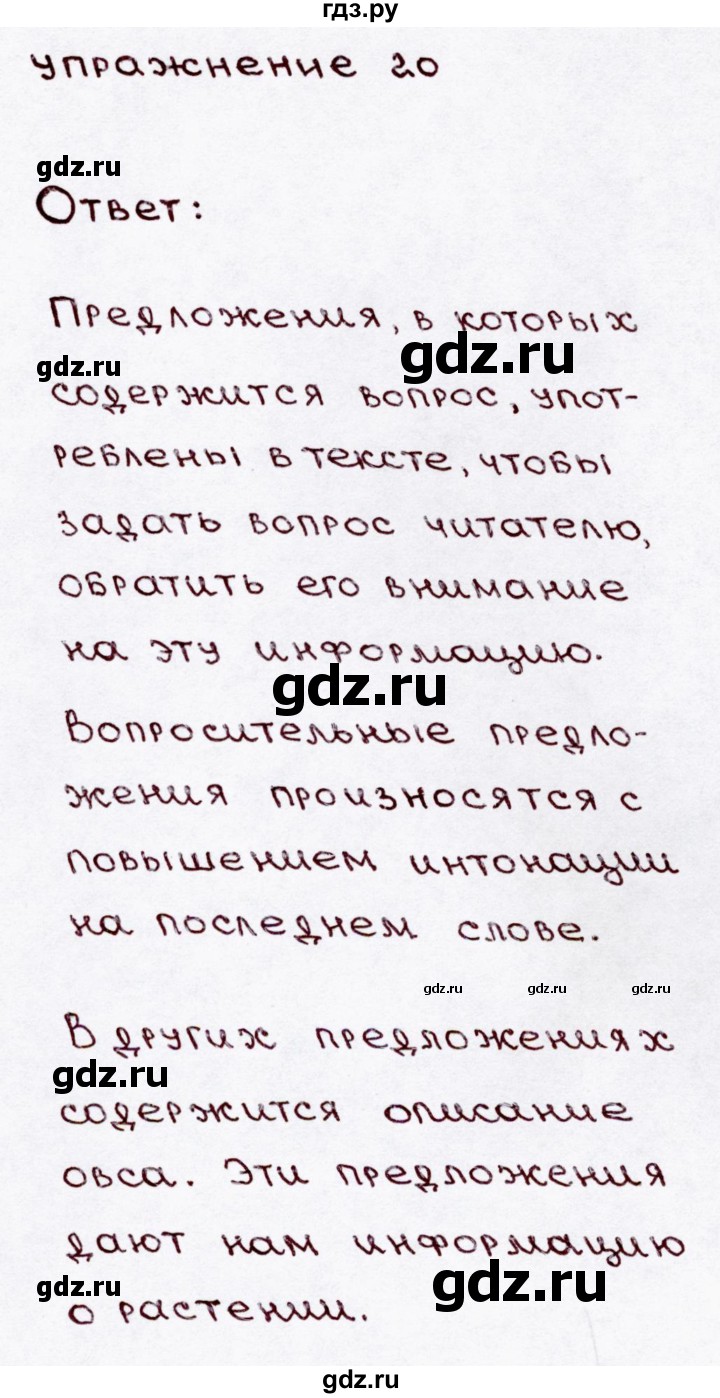 гдз.ру
упражнение 20
gdz.ru
Ответ:
Предложения, в которых
gdz.ru
gdz.ru
содержится вопрос, упот-
реблены в тексте, чтобы
задать вопрос читателю,
обратить его внимание
на эту информацию.
gdz.ru
Вопросительные предло-
жения произносятся с
повышением интонации
на последнем слове.
gdz.ru gdz.ru gdz.ru
В других предложениях
gdz.ru
содержится описание
овса. Эти предложения
дают нам информацию
gdz.ru
gdz.ru
о растении.
gdz.ru